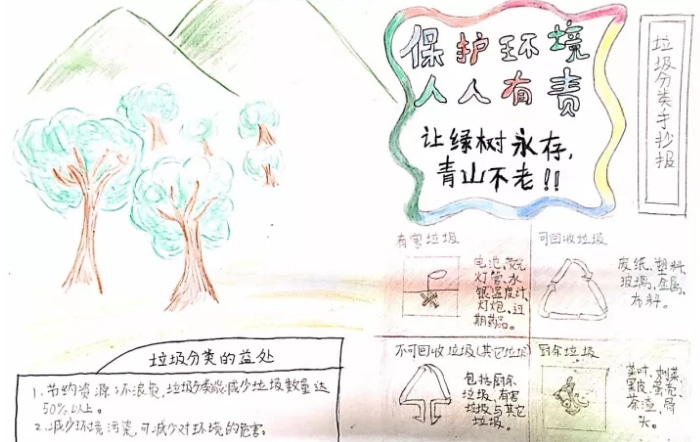 保护环境
人人有责
让绿树永存,
青山不老!!
垃圾分类手抄报
有害垃圾
电池、荧光
灯管、水
银温度计、
灯泡、过
期药品。
可回收垃圾
废纸、塑料、
玻璃、金属、
布料。
不可回收垃圾(其它垃圾)
包括厨余
垃圾、有害
垃圾与其它
垃圾。
厨余垃圾
菜叶、剩菜、
果皮、蛋壳、
茶渣、骨
头。
垃圾分类的益处
1、节约资源:不浪费,垃圾分类能减少垃圾数量达
50%以上。
2、减少环境污染,可减少对环境的危害。